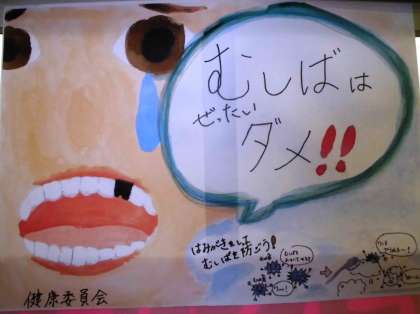 むしばは
ぜったい
ダメ!!
はみがきをして
むしばを防ごう!
健康委員会